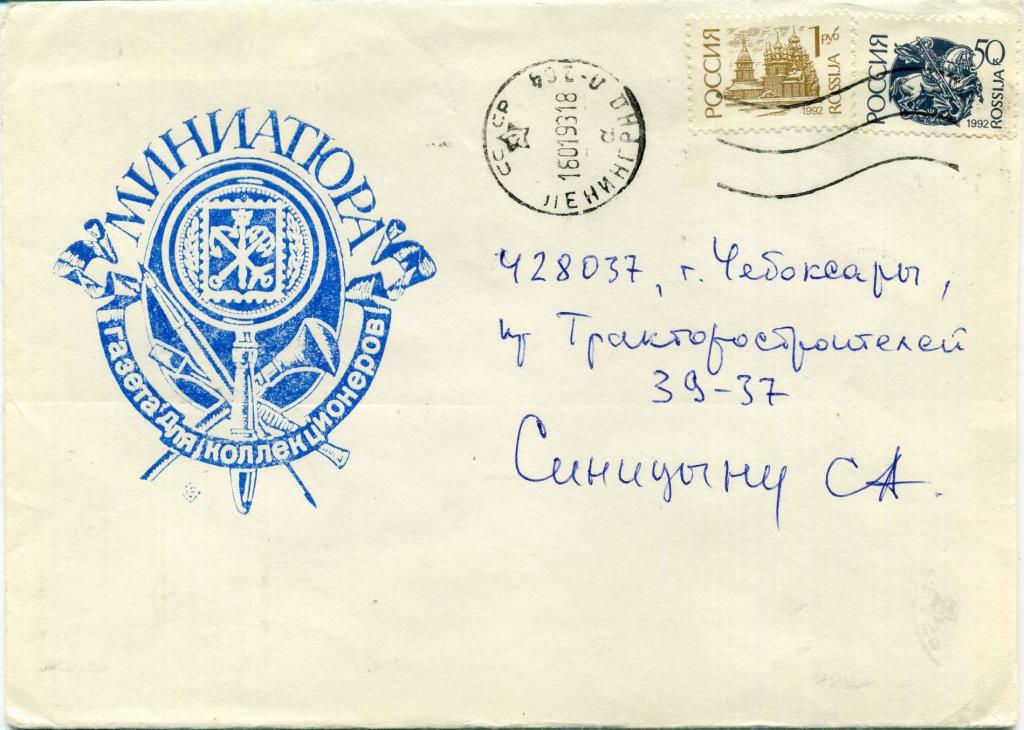 МИНИАТЮРА
газета для коллекционеров
СССР
ЛЕНИНГРАД П-304
1601199318
2
РОССИЯ
1 руб
ROSSIJA
1992
РОССИЯ
50
ROSSIJA к
1992
428037, г. Чебоксары,
пр Тракторостроителей
39-37
Синицыну СА.